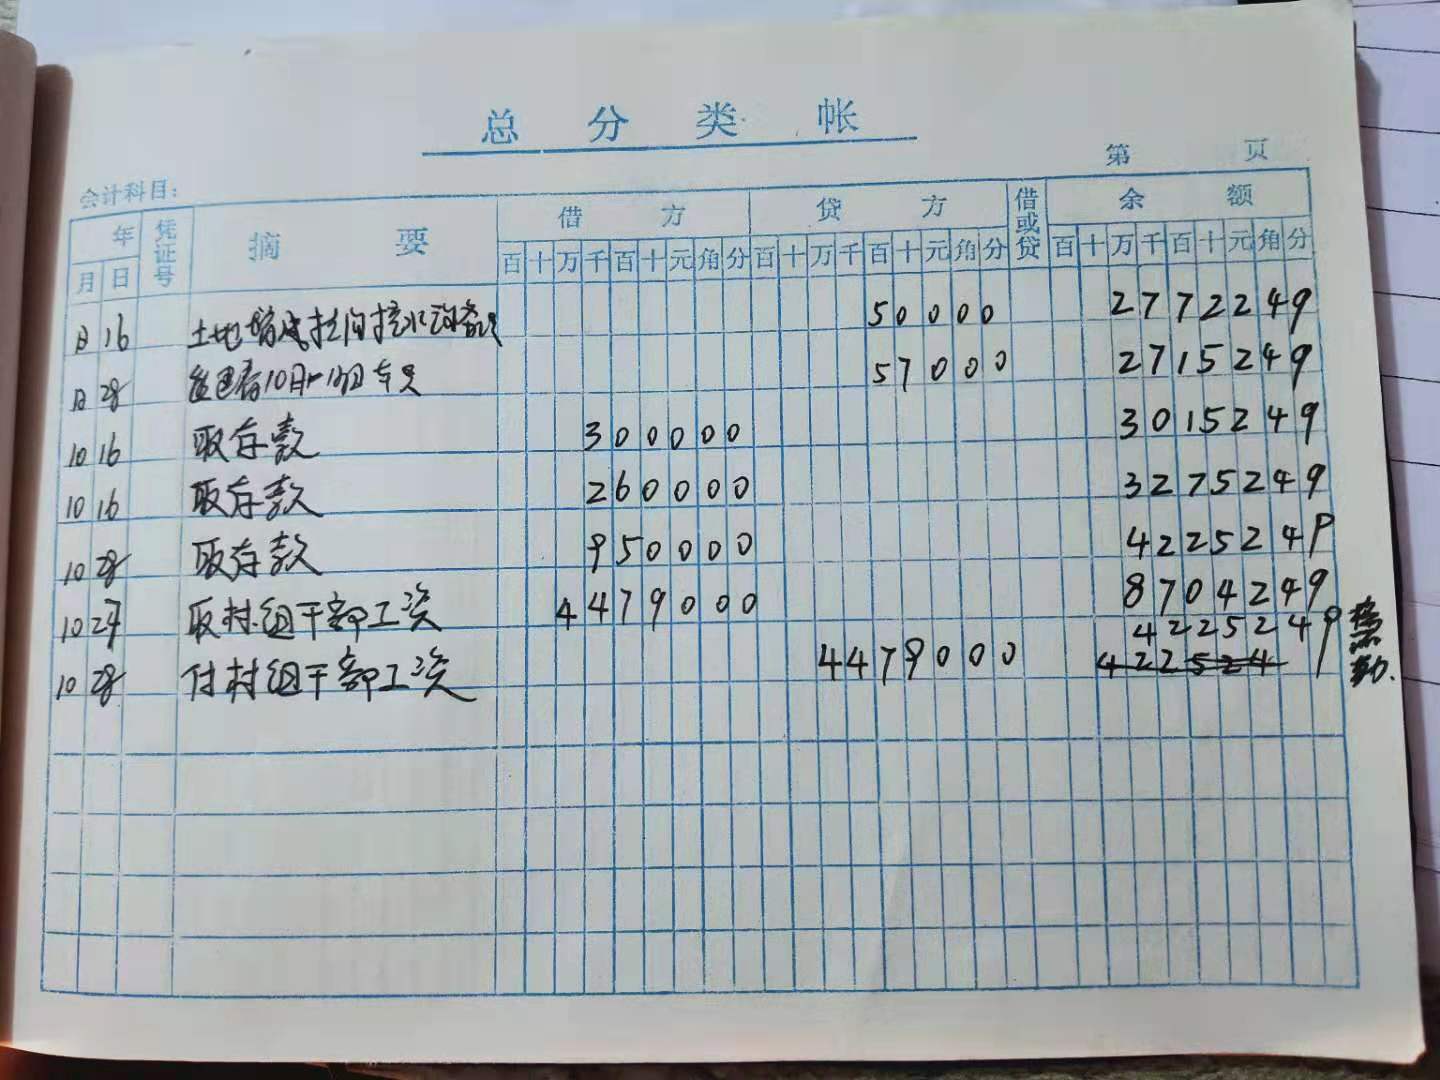 总分类帐
第 页
会计科目:
年 凭证号 摘要 借方 贷方 借或贷 余额
月 日 百十万千百十元角分 百十万千百十元角分 百十万千百十元角分
16 土地 50000 2772249
28 10月 57000 2715249
10 16 取存款 300000 3015249
10 16 取存款 260000 3275249
10 28 取存款 950000 4225249
10 27 取村组干部工资 4479000 8704249
4225249
10 28 付村组干部工资 4479000 4225249